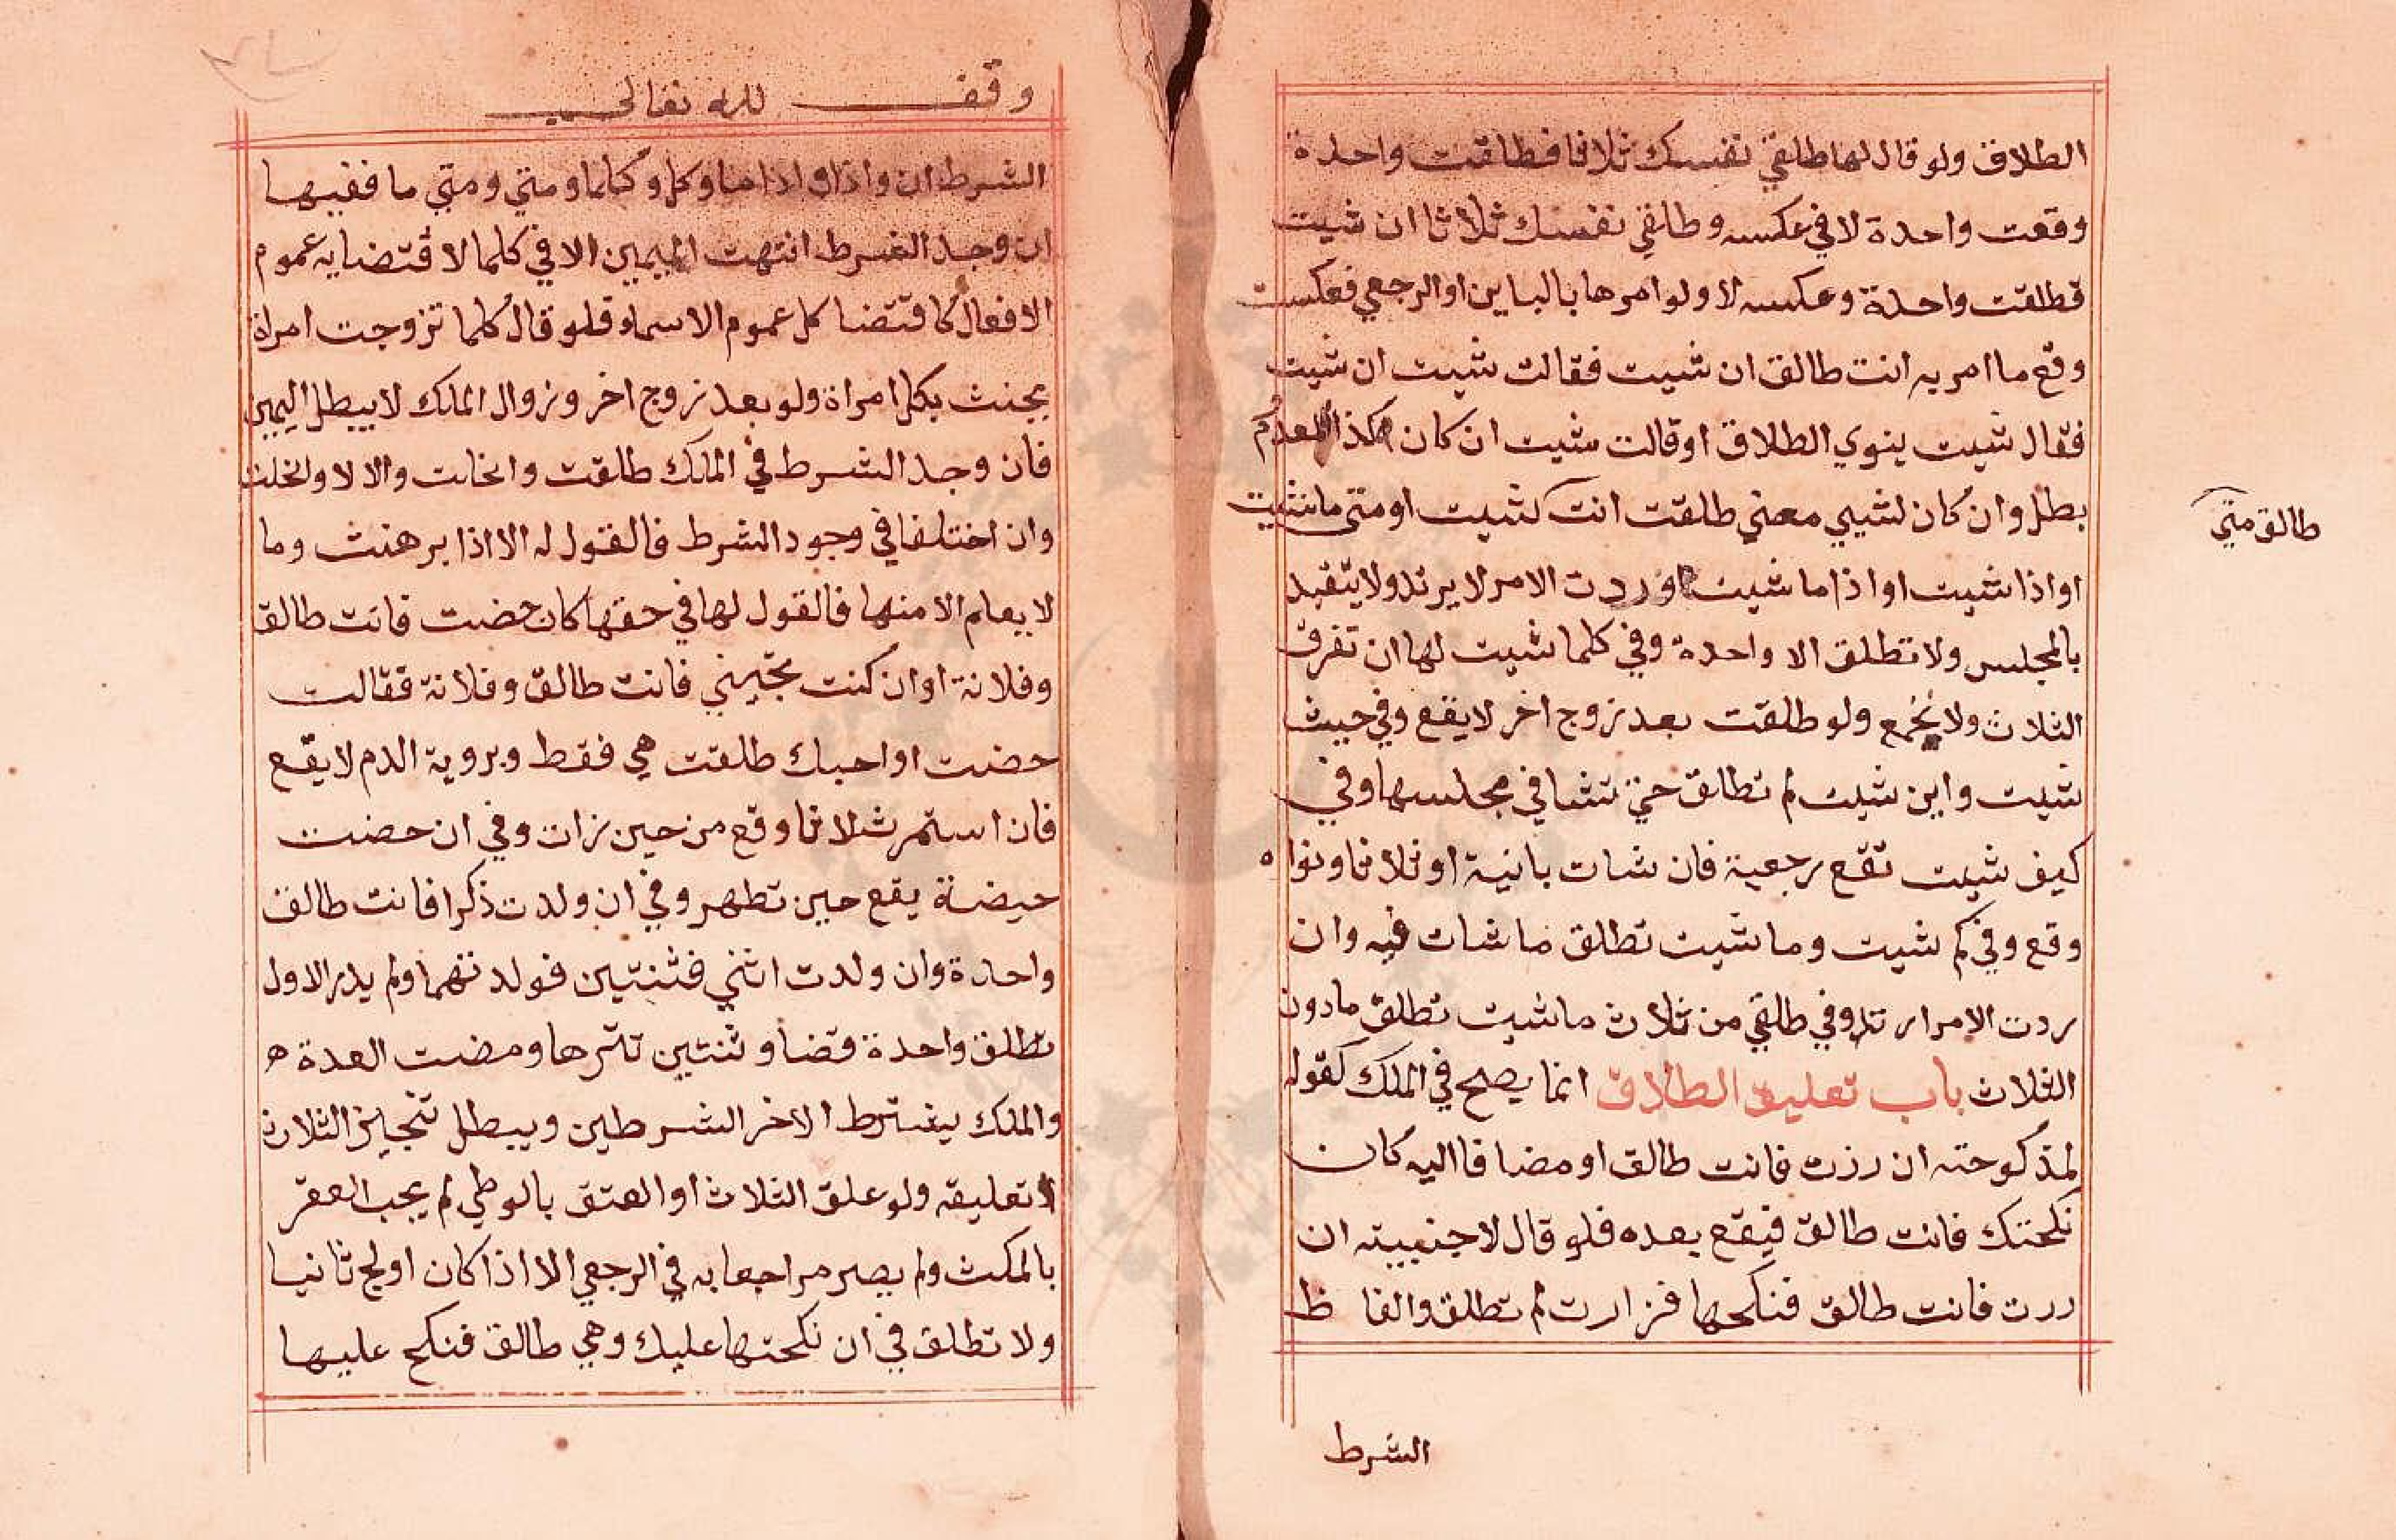 الطلاق ولو قال لها طلقي نفسك ثلاثا فطلقت واحدة
وقعت واحدة لا في عكسه وطلقي نفسك ثلاثا ان شيت
فطلقت واحدة وعكسه لا ولو امرها بالباين او الرجعي فعكست
وقع ما امر به انت طالق ان شيت فقالت شيت ان شيت
فقال شيت ينوي الطلاق او قالت شيت ان كان كذا لمعدوم
بطل وان كان لشيي مضي طلقت انت كشيت او متى ما شيت
طالق متي
او اذا شيت او اذا ما شيت وردت الامر لا يرتد ولا يتقيد
بالمجلس ولا تطلق الا واحدة وفي كلما شيت لها ان تفرق
الثلاث ولا تجمع ولو طلقت بعد زوج اخر لا يقع وفي حيث
شيت واين شيت لم تطلق حتي تشا في مجلسها وفي
كيف شيت تقع رجعية فان شات باينة او ثلاثا ونواه
وقع وفي كم شيت وما شيت تطلق ما شات فيه وان
ردت الامر ارتد وفي طلقي من ثلاث ما شيت تطلق ما دون
الثلاث باب تعليق الطلاق انما يصح في الملك كقوله
لمنكوحته ان زرت فانت طالق او مضافا اليه كان
نكحتك فانت طالق فيقع بعده فلو قال لاجنبيته ان
زرت فانت طالق فنكحها فزارت لم تطلق والفا ظ
الشرط
وقف لله تعالى
الشرط ان واذا واذا ما وكل وكلما ومتي ومتي ما ففيها
ان وجد الشرط انتهت اليمين الا في كلما لاقتضايه عموم
الافعال كاقتضا كل عموم الاسماء فلو قال كلما تزوجت امراة
يحنث بكل امراة ولو بعد زوج اخر وزوال الملك لا يبطل اليمين
فان وجد الشرط في الملك طلقت وانحلت والا لا وانحلت
وان اختلفا في وجود الشرط فالقول له الا اذا برهنت وما
لا يعلم الا منها فالقول لها في حقها كان حضت فانت طالق
وفلانة او ان كنت تحبيني فانت طالق وفلانة فقالت
حضت او احبك طلقت هي فقط وبروية الدم لا يقع
فان استمر ثلاثا وقع من حين رات وفي ان حضت
حيضة يقع حين تطهر وفي ان ولدت ذكرا فانت طالق
واحدة وان ولدت انثي فثنتين فولدتهما ولم يدر الاول
تطلق واحدة قضا وثنتين تنزها ومضت العدة ه
والملك يشترط لاخر الشرطين ويبطل تنجيز الثلاث
لا تعليقه ولو علق الثلاث او العتق بالوطي لم يجب العقر
بالمكث ولم يصر مراجعا به في الرجعي الا اذا كان اولج ثانيا
ولا تطلق في ان نكحتها عليك وهي طالق فنكح عليها